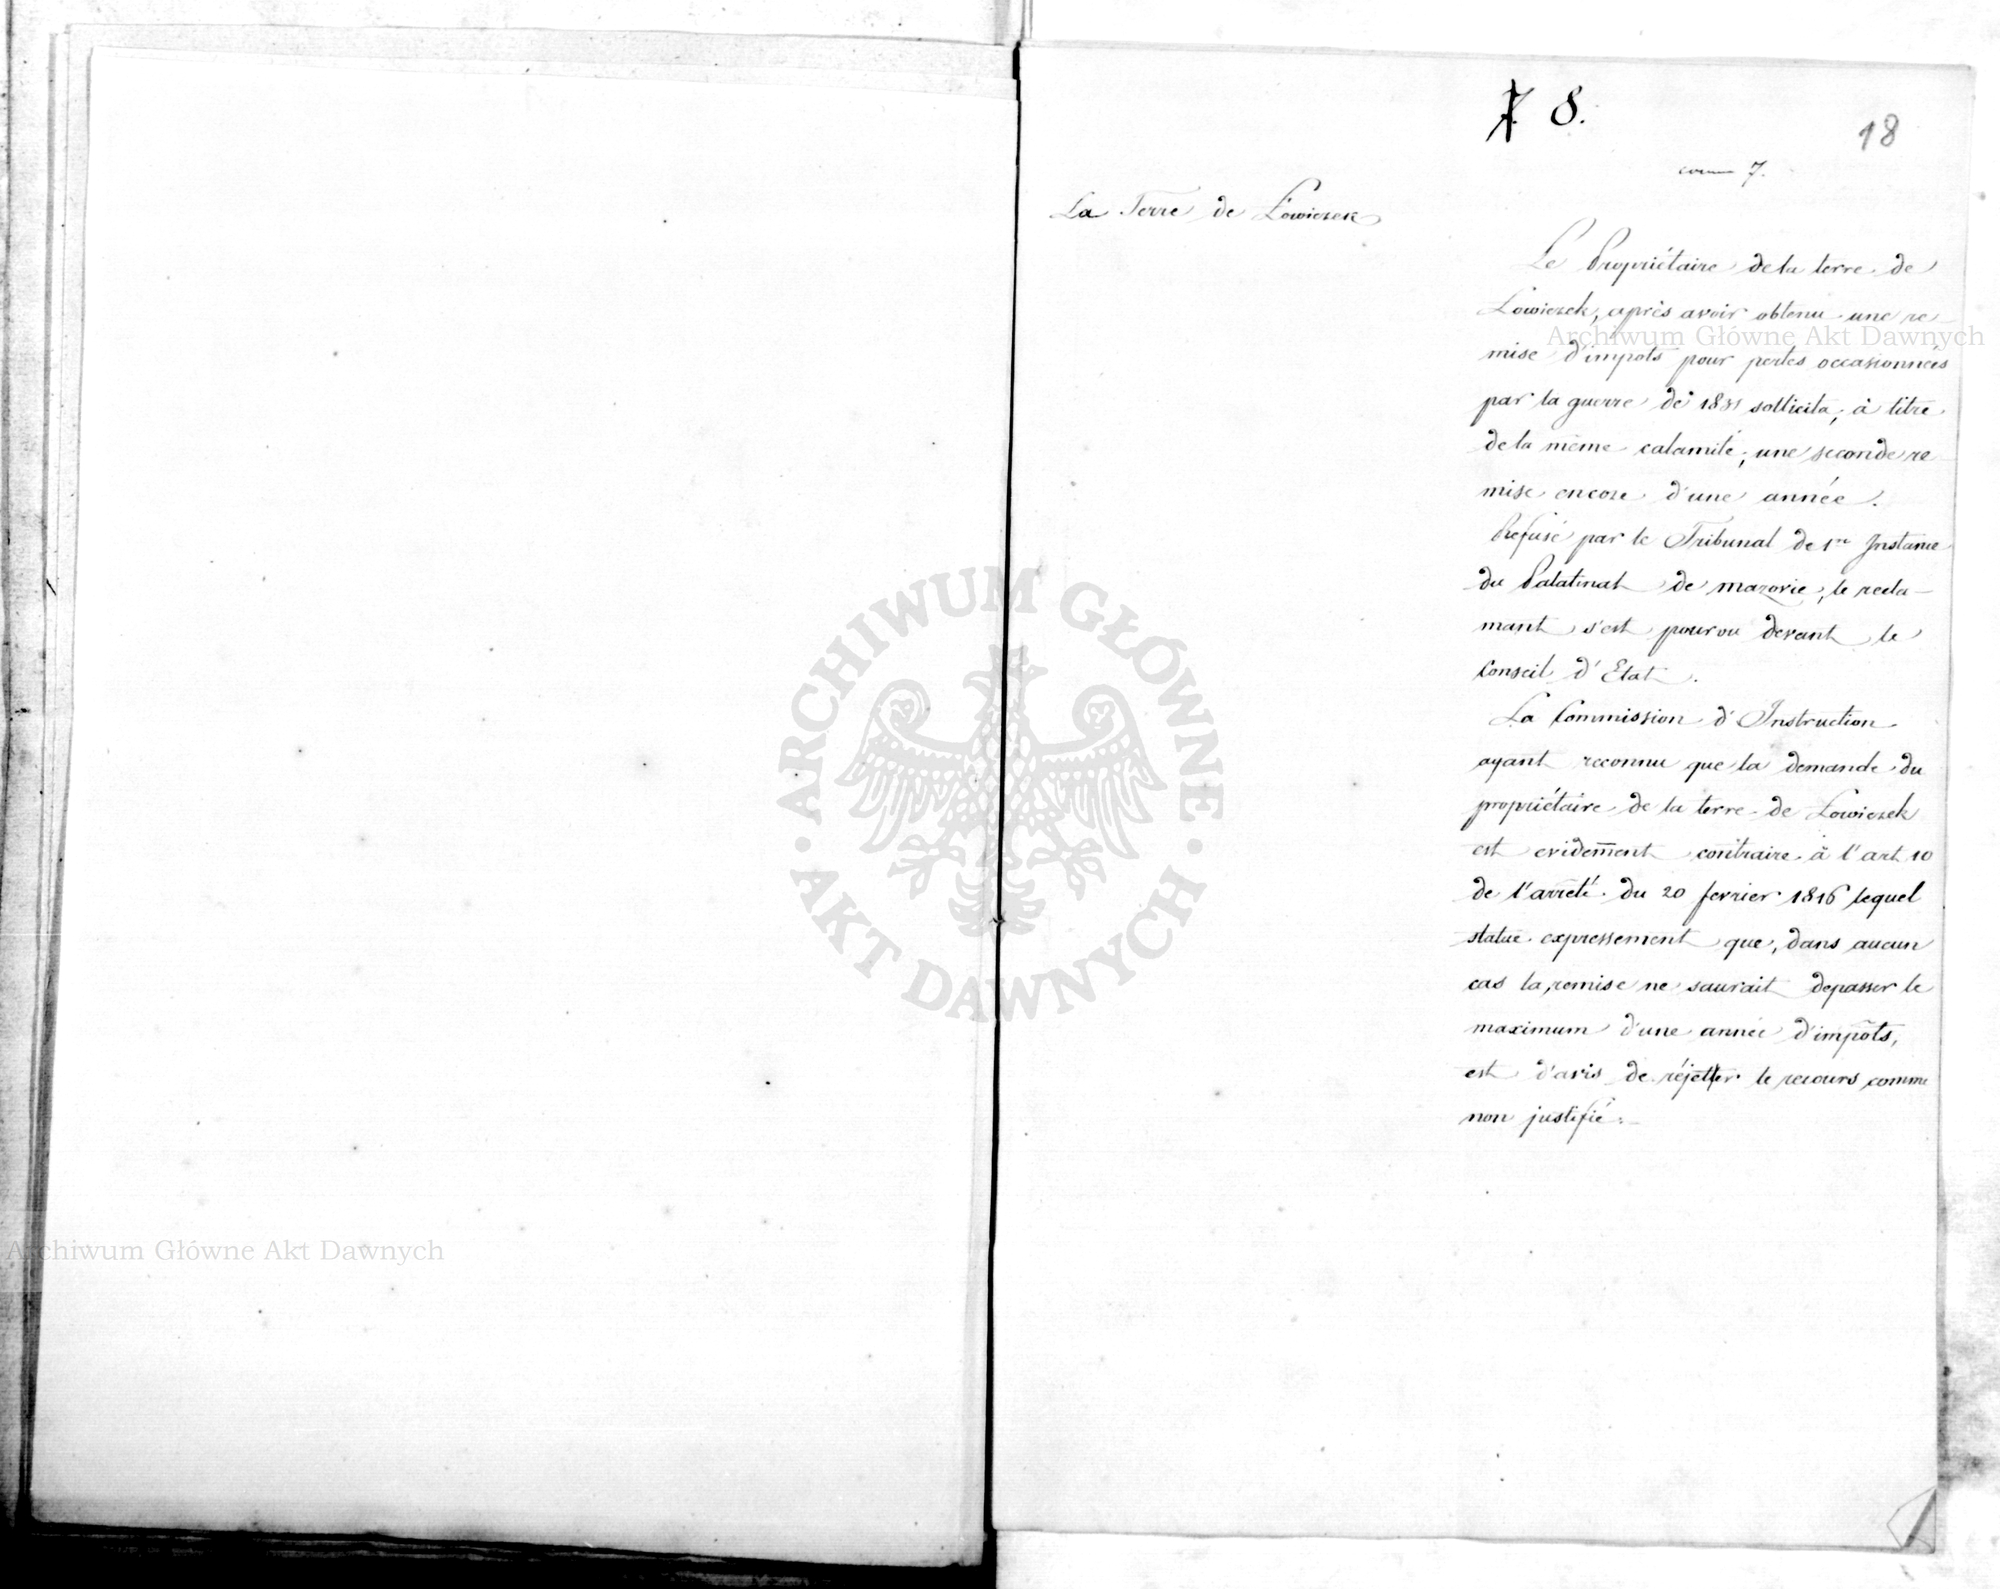 7. 8.
18
7.
La Terre de Łowiczek
Le Propriétaire de la terre de
Łowiczek, après avoir obtenu une re-
Archiwum Główne Akt Dawnych
mise d'impots pour pertes occasionnées
par la guerre de 1831 sollicita, à titre
de la même calamité, une seconde re
mise encore d'une année.
Refusé par le Tribunal de 1re Instance
du Palatinat de Mazovie, le recla-
mant s'est pourvu devant le
Conseil d'Etat.
La Commission d'Instruction
ayant reconnu que la demande du
propriétaire de la terre de Łowiczek
est evidemment contraire à l'art 10
de l'arrêté du 20 fevrier 1816 lequel
statue expressement que, dans aucun
cas la remise ne saurait depasser le
maximum d'une année d'impôts,
est d'avis de réjetter le recours comme
non justifié.
ARCHIWUM GŁÓWNE AKT DAWNYCH
Archiwum Główne Akt Dawnych